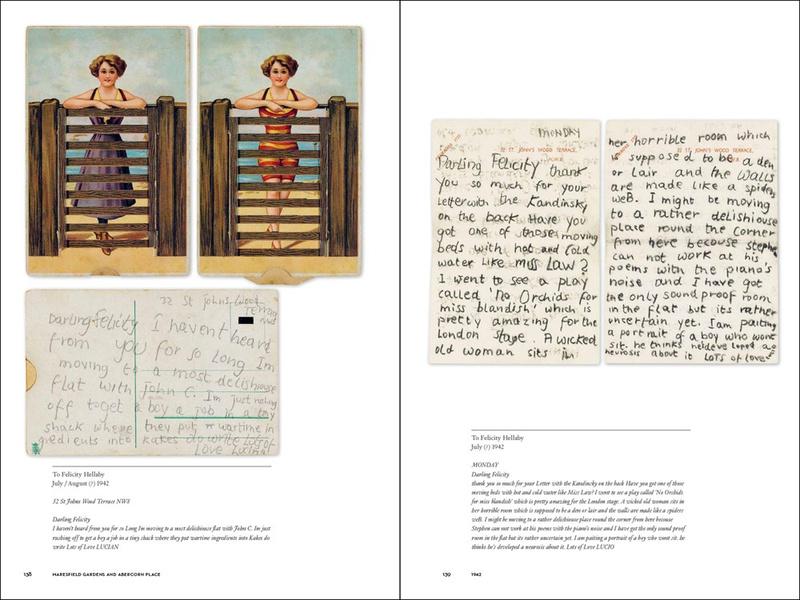 32 St Johns Wood
Terrace
NW8
Darling Felicity I haven't heard
from you for so long Im
moving to a most delishiouse
flat with John C. Im just rushing
off to get a boy a job in a tiny
shack where they put wartime in
gredients into Kakes do write Lots of
Love LUCIAN
To Felicity Hellaby
July / August (?) 1942
32 St Johns Wood Terrace NW8
Darling Felicity
I haven't heard from you for so Long Im moving to a most delishiouse flat with John C. Im just
rushing off to get a boy a job in a tiny shack where they put wartime ingredients into Kakes do
write Lots of Love LUCIAN
138 MARESFIELD GARDENS AND ABERCORN PLACE
MONDAY
32 ST. JOHN'S WOOD TERRACE,
N.W.8.
Darling Felicity thank
you so much for your
Letter with the Kandinsky
on the back Have you
got one of those moving
beds with hot and cold
water like Miss Law?
I went to see a play
called 'No Orchids for
miss blandish' which is
pretty amazing for the
London stage. A wicked
old woman sits in
her horrible room which
32 ST. JOHN'S WOOD TERRACE,
N.W.8.
is supposed to be a den
or lair and the walls
are made like a spiders
weB. I might be moving
to a rather delishiouse
place round the corner
from here becouse stephen
can not work at his
poems with the piano's
noise and I have got
the only sound proof room
in the flat but its rather
uncertain yet. I am paiting
a portrait of a boy who wont
sit. he thinks he's developed a
neurosis about it LoTs of Love
To Felicity Hellaby
July (?) 1942
MONDAY
Darling Felicity
thank you so much for your Letter with the Kandinsky on the back Have you got one of those
moving beds with hot and cold water like Miss Law? I went to see a play called 'No Orchids
for miss blandish' which is pretty amazing for the London stage. A wicked old woman sits in
her horrible room which is supposed to be a den or lair and the walls are made like a spiders
weB. I might be moving to a rather delishiouse place round the corner from here because
Stephen can not work at his poems with the piano's noise and I have got the only sound proof
room in the flat but its rather uncertain yet. I am paiting a portrait of a boy who wont sit. he
thinks he's developed a neurosis about it. Lots of Love LUCIO
139 1942